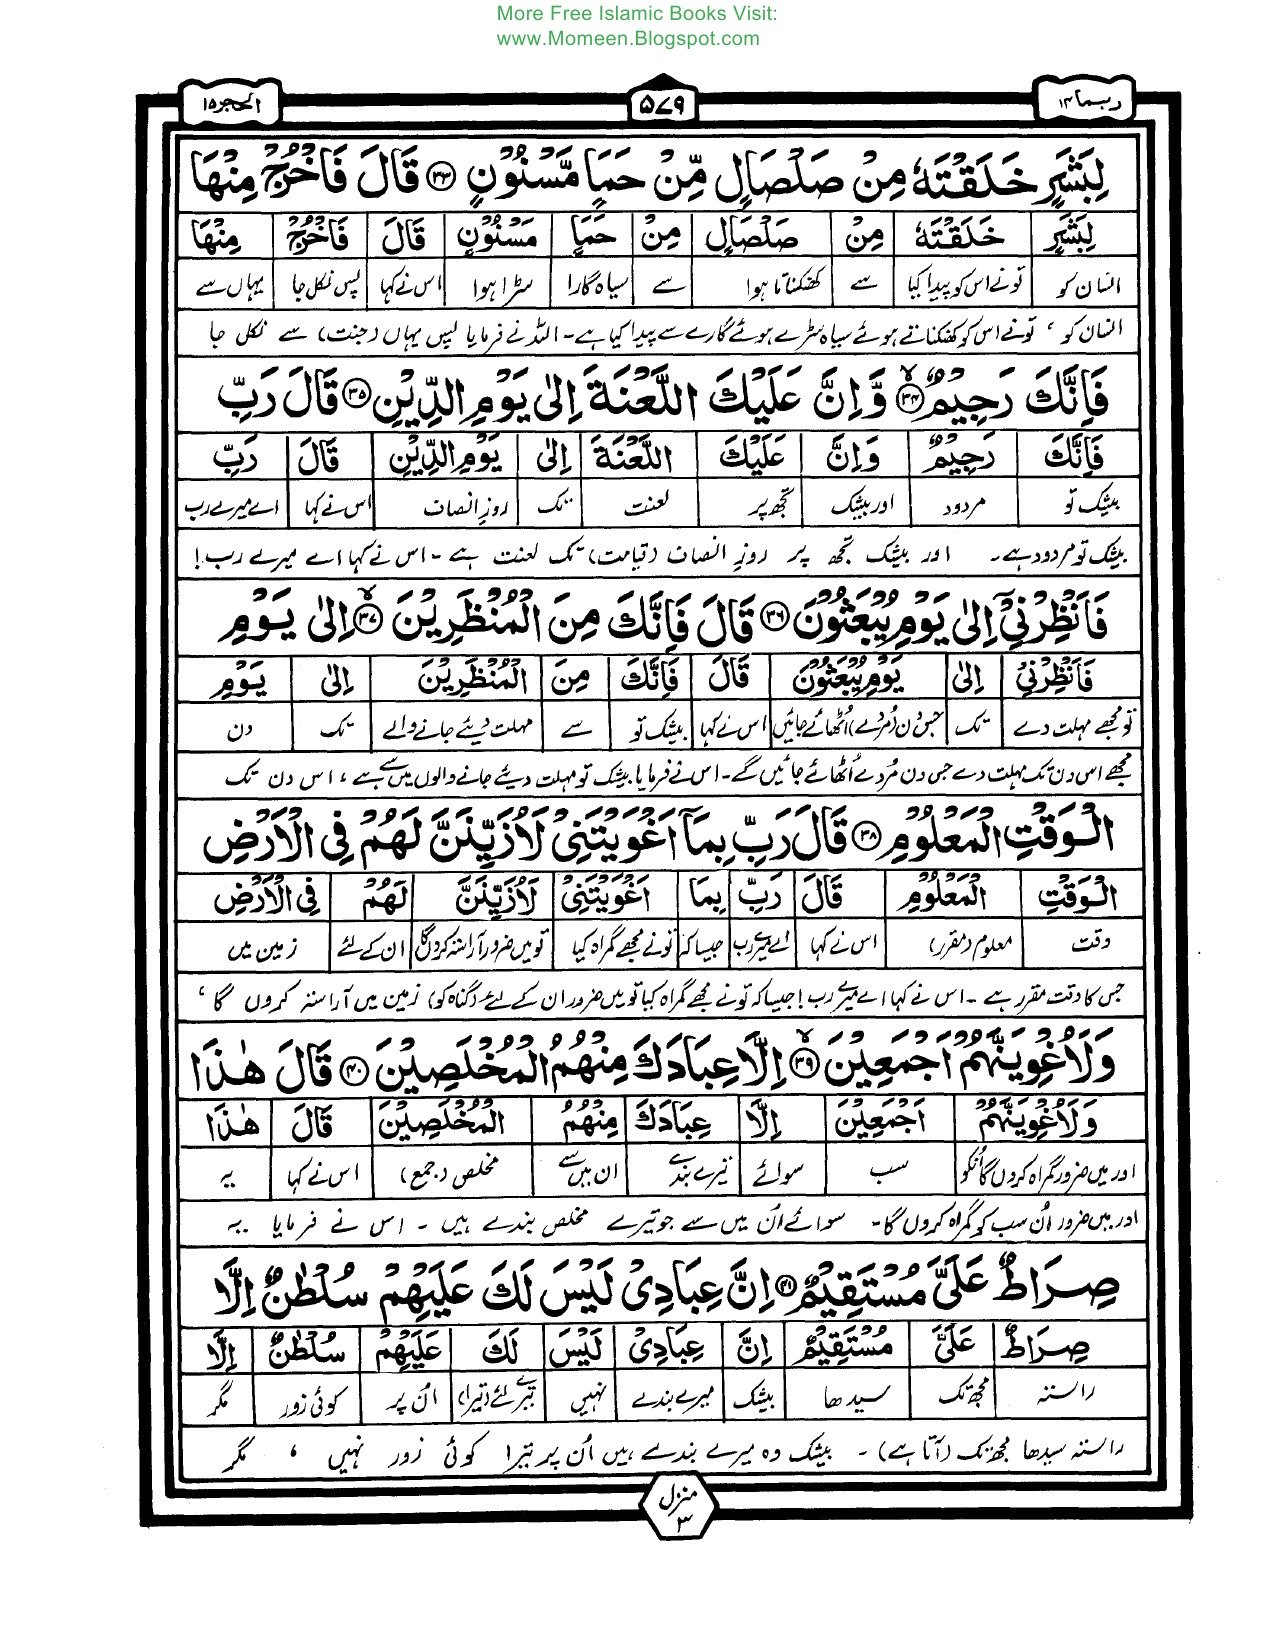 More Free Islamic Books Visit:
www.Momeen.Blogspot.com
ربما ۱۴
۵۷۹
الحجر ۱۵
لِبَشَرٍ خَلَقْتَهٗ مِنْ صَلْصَالٍ مِّنْ حَمَاٍ مَّسْنُوْنٍ ۳۳ قَالَ فَاخْرُجْ مِنْهَا
لِبَشَرٍ خَلَقْتَهٗ مِنْ صَلْصَالٍ مِنْ حَمَاٍ مَسْنُوْنٍ قَالَ فَاخْرُجْ مِنْهَا
انسان کو تونے اس کو پیدا کیا سے کھنکناتا ہوا سے سیاہ گارا سڑا ہوا اس نے کہا پس نکل جا یہاں سے
انسان کو ، تونے اس کو کھنکناتے ہوئے سیاہ سڑے ہوئے گارے سے پیدا کیا ہے۔ اللہ نے فرمایا پس یہاں (جنت) سے نکل جا
فَاِنَّكَ رَجِيْمٌ ۳۴ وَّاِنَّ عَلَيْكَ اللَّعْنَةَ اِلٰى يَوْمِ الدِّيْنِ ۳۵ قَالَ رَبِّ
فَاِنَّكَ رَجِيْمٌ وَاِنَّ عَلَيْكَ اللَّعْنَةَ اِلٰى يَوْمِ الدِّيْنِ قَالَ رَبِّ
بیشک تو مردود اور بیشک تجھ پر لعنت تک روزِ انصاف اس نے کہا اے میرے رب
بیشک تو مردود ہے۔ اور بیشک تجھ پر روزِ انصاف (قیامت) تک لعنت ہے۔ اس نے کہا اے میرے رب!
فَاَنْظِرْنِيْٓ اِلٰى يَوْمِ يُبْعَثُوْنَ ۳۶ قَالَ فَاِنَّكَ مِنَ الْمُنْظَرِيْنَ ۳۷ اِلٰى يَوْمِ
فَاَنْظِرْنِيْ اِلٰى يَوْمِ يُبْعَثُوْنَ قَالَ فَاِنَّكَ مِنَ الْمُنْظَرِيْنَ اِلٰى يَوْمِ
تو مجھے مہلت دے تک جس دن (مردے) اُٹھائے جائیں اس نے کہا بیشک تو سے مہلت دیئے جانے والے تک دن
مجھے اس دن تک مہلت دے جس دن مُردے اُٹھائے جائیں گے۔ اس نے فرمایا بیشک تو مہلت دیئے جانے والوں میں سے ہے ، اس دن تک
الْوَقْتِ الْمَعْلُوْمِ ۳۸ قَالَ رَبِّ بِمَآ اَغْوَيْتَنِيْ لَاُزَيِّنَنَّ لَهُمْ فِي الْاَرْضِ
الْوَقْتِ الْمَعْلُوْمِ قَالَ رَبِّ بِمَا اَغْوَيْتَنِيْ لَاُزَيِّنَنَّ لَهُمْ فِي الْاَرْضِ
وقت معلوم (مقرر) اس نے کہا اے میرے رب جیسا کہ تونے مجھے گمراہ کیا تو میں ضرور آراستہ کروں گا ان کے لئے زمین میں
جس کا وقت مقرر ہے ۔ اس نے کہا اے میرے رب! جیسا کہ تو نے مجھے گمراہ کیا تو میں ضرور ان کے لئے (گناہ کو) زمین میں آراستہ کروں گا ،
وَلَاُغْوِيَنَّهُمْ اَجْمَعِيْنَ ۳۹ اِلَّا عِبَادَكَ مِنْهُمُ الْمُخْلَصِيْنَ ۴۰ قَالَ هٰذَا
وَلَاُغْوِيَنَّهُمْ اَجْمَعِيْنَ اِلَّا عِبَادَكَ مِنْهُمُ الْمُخْلَصِيْنَ قَالَ هٰذَا
اور میں ضرور گمراہ کروں گا اُنکو سب سوائے تیرے بندے ان میں سے مخلص (جمع) اس نے کہا یہ
اور میں ضرور اُن سب کو گمراہ کروں گا۔ سوائے اُن میں سے جو تیرے مخلص بندے ہیں ۔ اس نے فرمایا یہ
صِرَاطٌ عَلَيَّ مُسْتَقِيْمٌ ۴۱ اِنَّ عِبَادِيْ لَيْسَ لَكَ عَلَيْهِمْ سُلْطٰنٌ اِلَّا
صِرَاطٌ عَلَيَّ مُسْتَقِيْمٌ اِنَّ عِبَادِيْ لَيْسَ لَكَ عَلَيْهِمْ سُلْطٰنٌ اِلَّا
راستہ مجھ تک سیدھا بیشک میرے بندے نہیں تیرے لئے (تیرا) اُن پر کوئی زور مگر
راستہ سیدھا مجھ تک (آتا ہے) ۔ بیشک وہ میرے بندے ہیں اُن پر تیرا کوئی زور نہیں ، مگر
منزل ۳